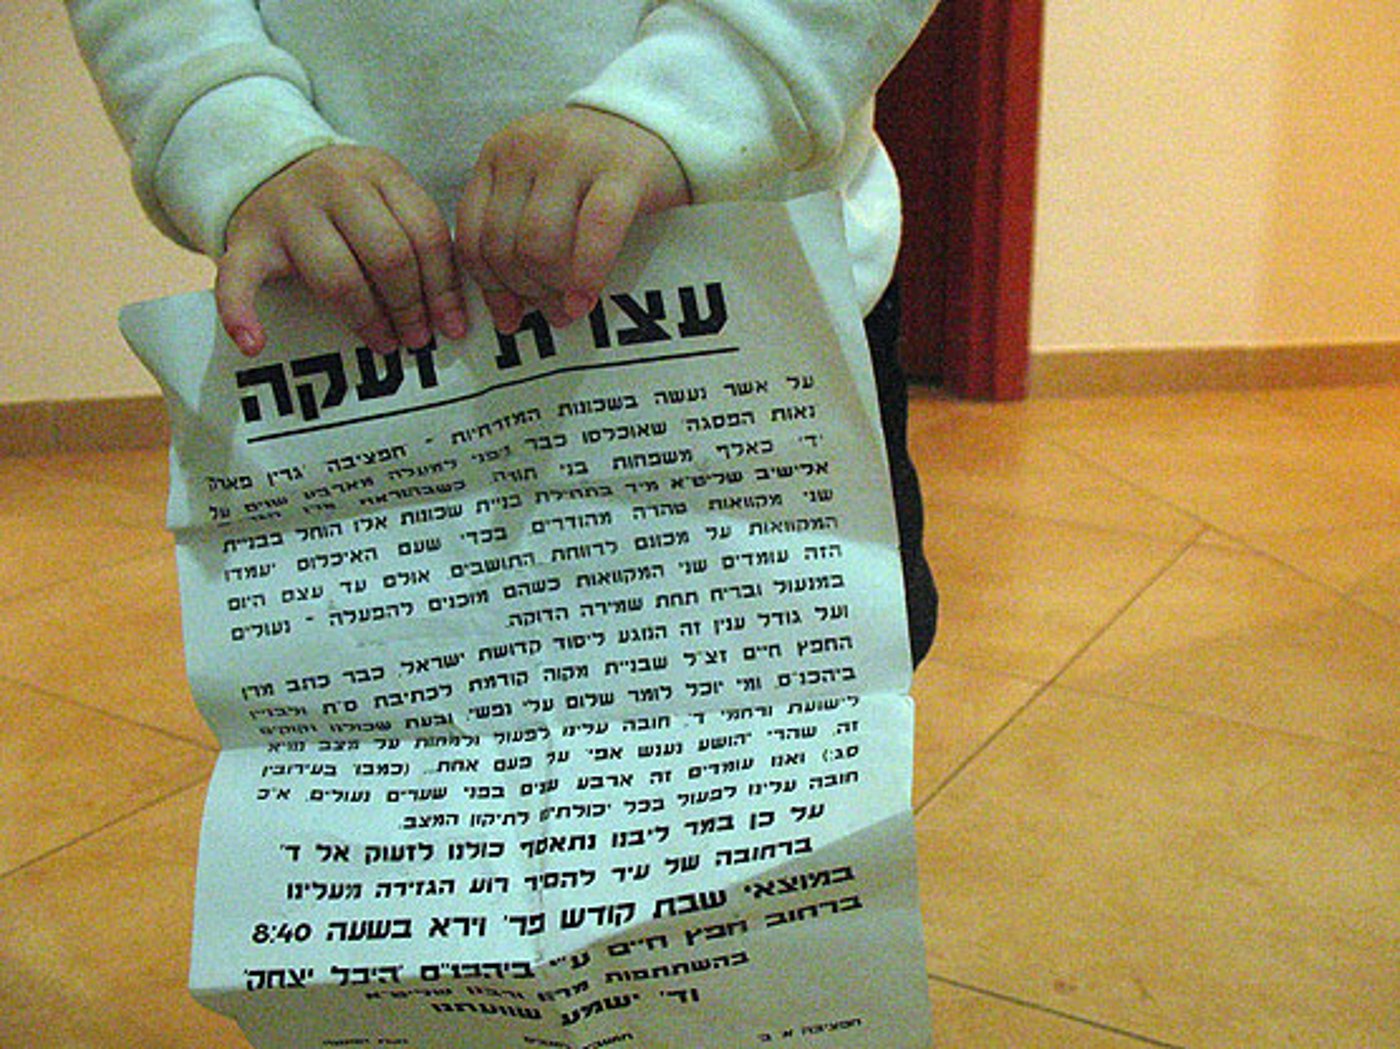 עצרת זעקה
על אשר נעשה בשכונות המזרחיות - חפציבה גרין פארק
נאות הפסגה שאוכלסו כבר לפני למעלה מארבע שנים על
ידי כאלף משפחות בני תורה, כשבהוראת מרן הגרי"ש
אלישיב שליט"א מיד בתחילת בניית שכונות אלו הוחל בבניית
שני מקוואות טהרה מהודרים, בכדי שעם האיכלוס יעמדו
המקוואות על מכונם לרווחת התושבים, אולם עד עצם היום
הזה עומדים שני המקוואות כשהם מוכנים להפעלה - נעולים
במנעול ובריח תחת שמירה הדוקה.
ועל גודל ענין זה הנוגע ליסוד קדושת ישראל, כבר כתב מרן
החפץ חיים זצ"ל שבניית מקוה קודמת לכתיבת ס"ת ולבניין
ביהכנ"ס, ומי יוכל לומר שלום עלי נפשי, ובעת שכולנו זקוקים
לישועת ורחמי ד', חובה עלינו לפעול ולמחות על מצב נורא
זה, שהרי יהושע נענש אפי' על פעם אחת... (כמבו' בעירובין
סג:) ואנו עומדים זה ארבע שנים בפני שערים נעולים, א"כ
חובה עלינו לפעול בכל יכולתינו לתיקון המצב.
על כן במר ליבנו נתאסף כולנו לזעוק אל ד'
ברחובה של עיר להסיר רוע הגזירה מעלינו
במוצאי שבת קודש פר' וירא בשעה 8:40
ברחוב חפץ חיים ע"י ביהכנ"ס 'היכל יצחק'
בהשתתפות מרנן ורבנן שליט"א
וד' ישמע שוועתנו
חפציבה א ב'